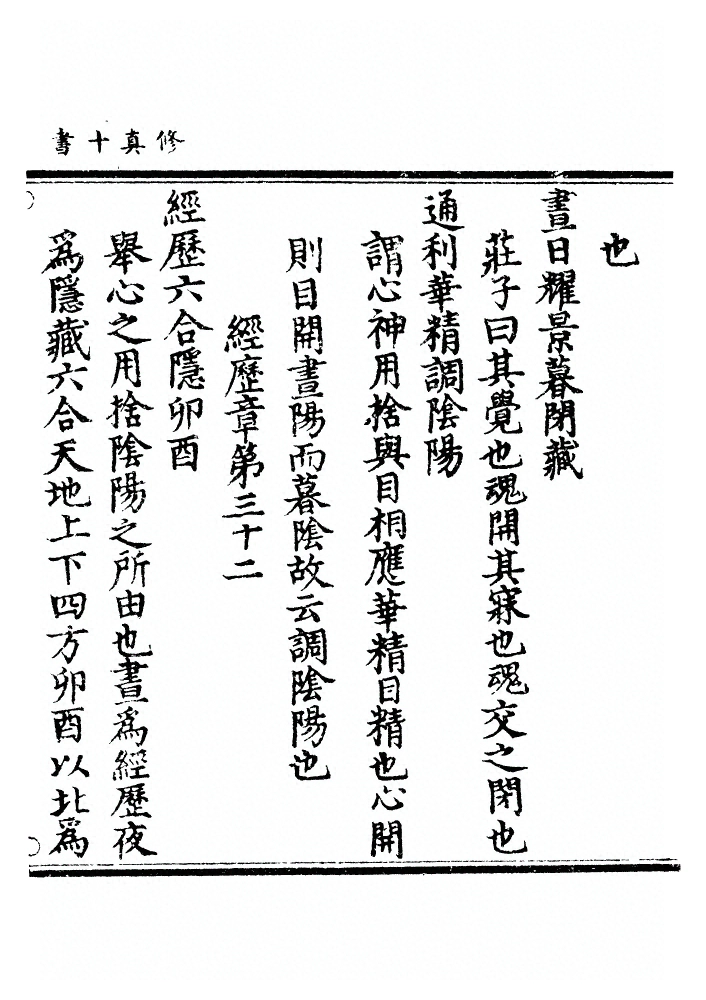 修真十書
也
晝日耀景暮閉藏
莊子曰其覺也魂開其寐也魂交之閉也
通利華精調陰陽
謂心神用捨與目相應華精目精也心開
則目開晝陽而暮陰故云調陰陽也
經歷章第三十二
經歷六合隱卯酉
舉心之用捨陰陽之所由也晝為經歷夜
為隱藏六合天地上下四方卯酉以北為